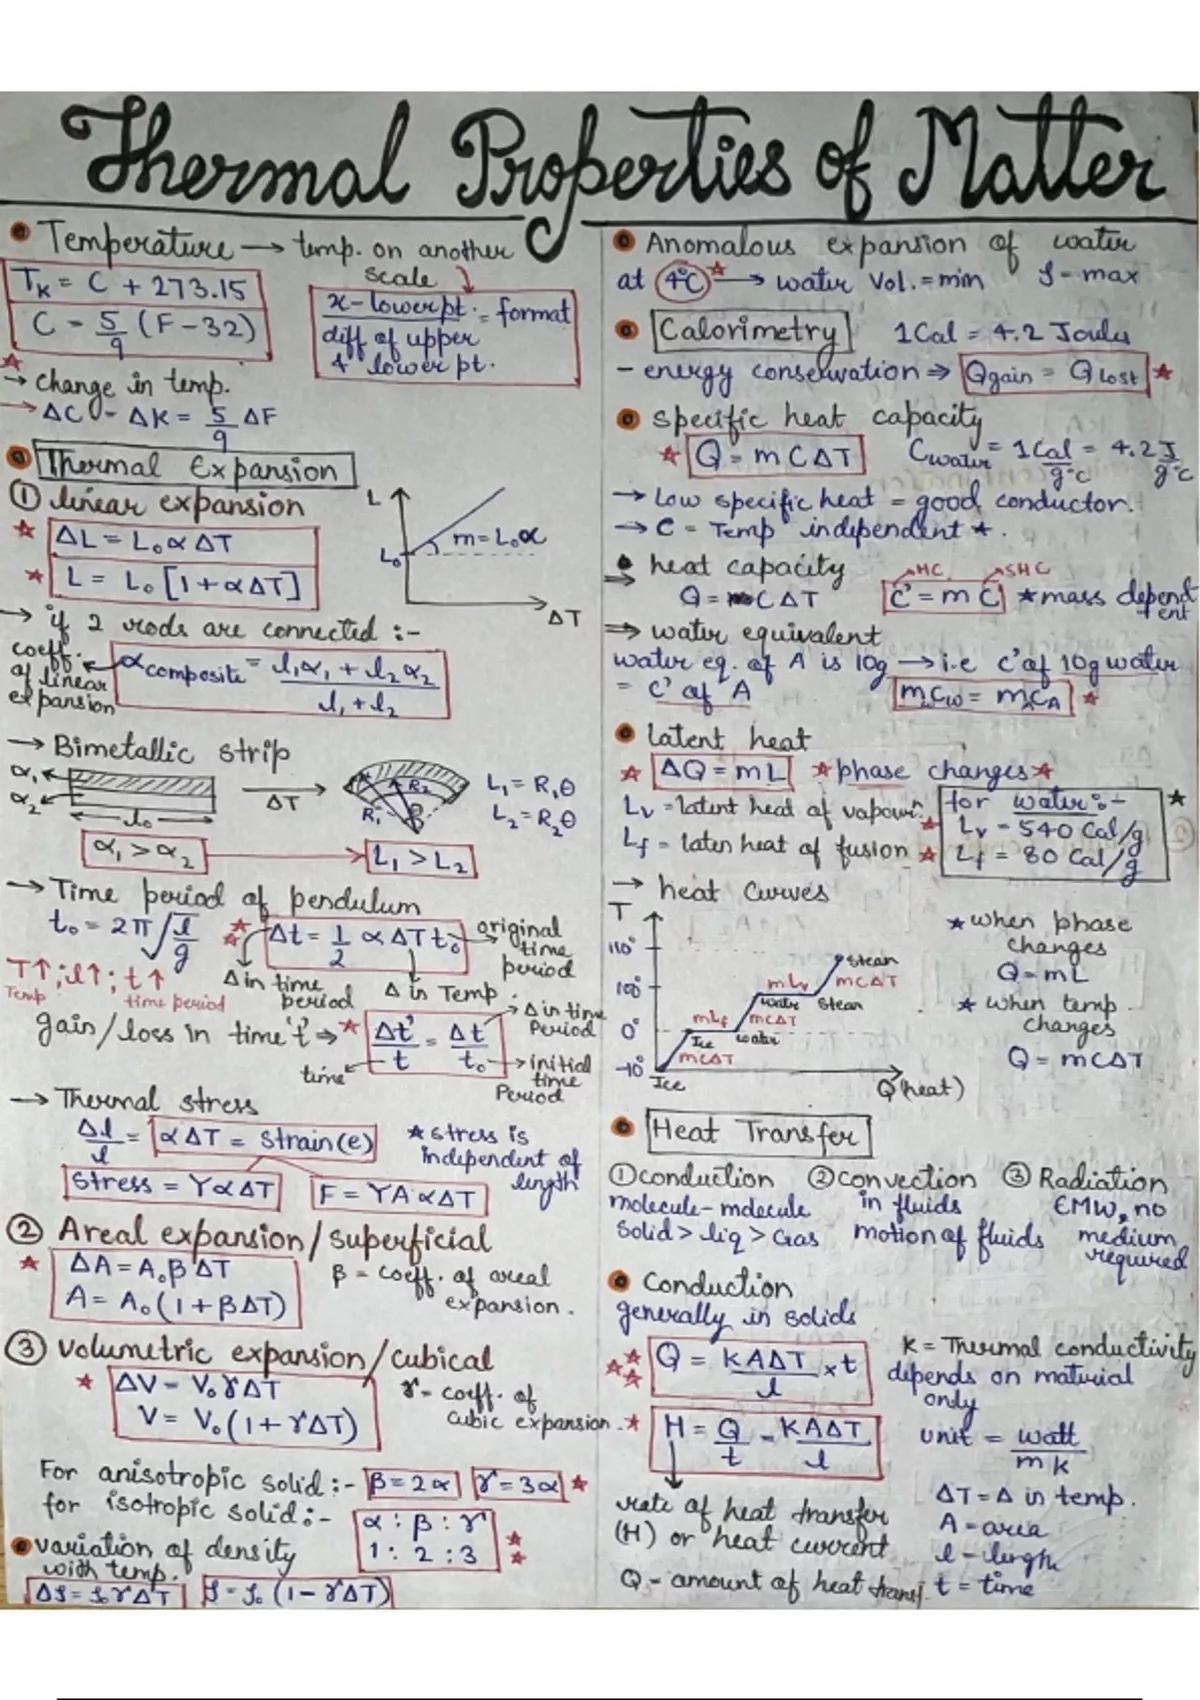 Thermal Properties of Matter
Temperature → temp. on another scale
T_K = C + 273.15
C = 5/9 (F - 32)
x - lower pt. / diff of upper & lower pt. = format
→ Change in temp.
→ ΔC - ΔK = 5/9 ΔF
Thermal Expansion
① linear expansion
ΔL = L₀ α ΔT
L = L₀ [1 + αΔT]
L
L₀
m = L₀α
ΔT
→ if 2 rods are connected :-
coeff. of linear expansion
α composite = l₁α₁ + l₂α₂ / l₁ + l₂
→ Bimetallic strip
α₁
α₂
l₀
ΔT
R₁
R₂
θ
L₁ = R₁θ
L₂ = R₂θ
α₁ > α₂
L₁ > L₂
→ Time period of pendulum
t₀ = 2π √l/g
Δt = 1/2 α ΔT t₀
original time period
T↑; l↑; t↑
Temp time period
Δ in time period
Δ in Temp.
gain/loss in time 't' ⇒
Δt'/t = Δt/t₀
Δ in time Period
time
initial time Period
→ Thermal stress
Δl/l = αΔT = strain(e)
★ stress is independent of length
Stress = YαΔT
F = YAαΔT
② Areal expansion/superficial
ΔA = A₀βΔT
A = A₀(1 + βΔT)
β = coeff. of areal expansion.
③ Volumetric expansion/cubical
ΔV = V₀γΔT
V = V₀(1 + γΔT)
γ = coeff. of cubic expansion.
For anisotropic solid :- β = 2α γ = 3α
for isotropic solid :- α : β : γ
1 : 2 : 3
variation of density with temp.
Δρ = ρ₀γΔT ρ = ρ₀(1 - γΔT)
Anomalous expansion of water
at 4°C → water Vol. = min ρ - max
Calorimetry 1 Cal = 4.2 Joules
- energy conservation ⇒ Q gain = Q lost
specific heat capacity
Q = mCΔT
C water = 1 Cal/g°C = 4.2 J/g°C
→ Low specific heat = good conductor.
→ C = Temp independent ★.
heat capacity
HC SHC
⇒ Q = CΔT C' = mC ★ mass dependent
⇒ water equivalent
water eq. of A is 10g → i.e C' of 10g water
= C' of A
m_w C_w = m_A C_A
latent heat
ΔQ = mL ★ phase changes ★
Lv = latent heat of vapour.
Lf = laten heat of fusion
for water :-
Lv = 540 Cal/g
Lf = 80 Cal/g
→ heat curves
T
110°
100°
0°
-10°
Ice
mCΔT
Ice
mLf
water
mCΔT
water
mLv
stean
mCΔT
stean
Q(heat)
★ when phase changes
Q = mL
★ when temp. changes
Q = mCΔT
Heat Transfer
① conduction ② convection ③ Radiation
molecule - molecule in fluids EMW, no
solid > liq > Gas motion of fluids medium required
Conduction
generally in solids
Q = KAΔT/l × t
K = Thermal conductivity
depends on material only
H = Q/t = KAΔT/l
unit = watt/mk
rate of heat transfer
(H) or heat current
ΔT = Δ in temp.
A = area
l = length
Q - amount of heat transf. t = time